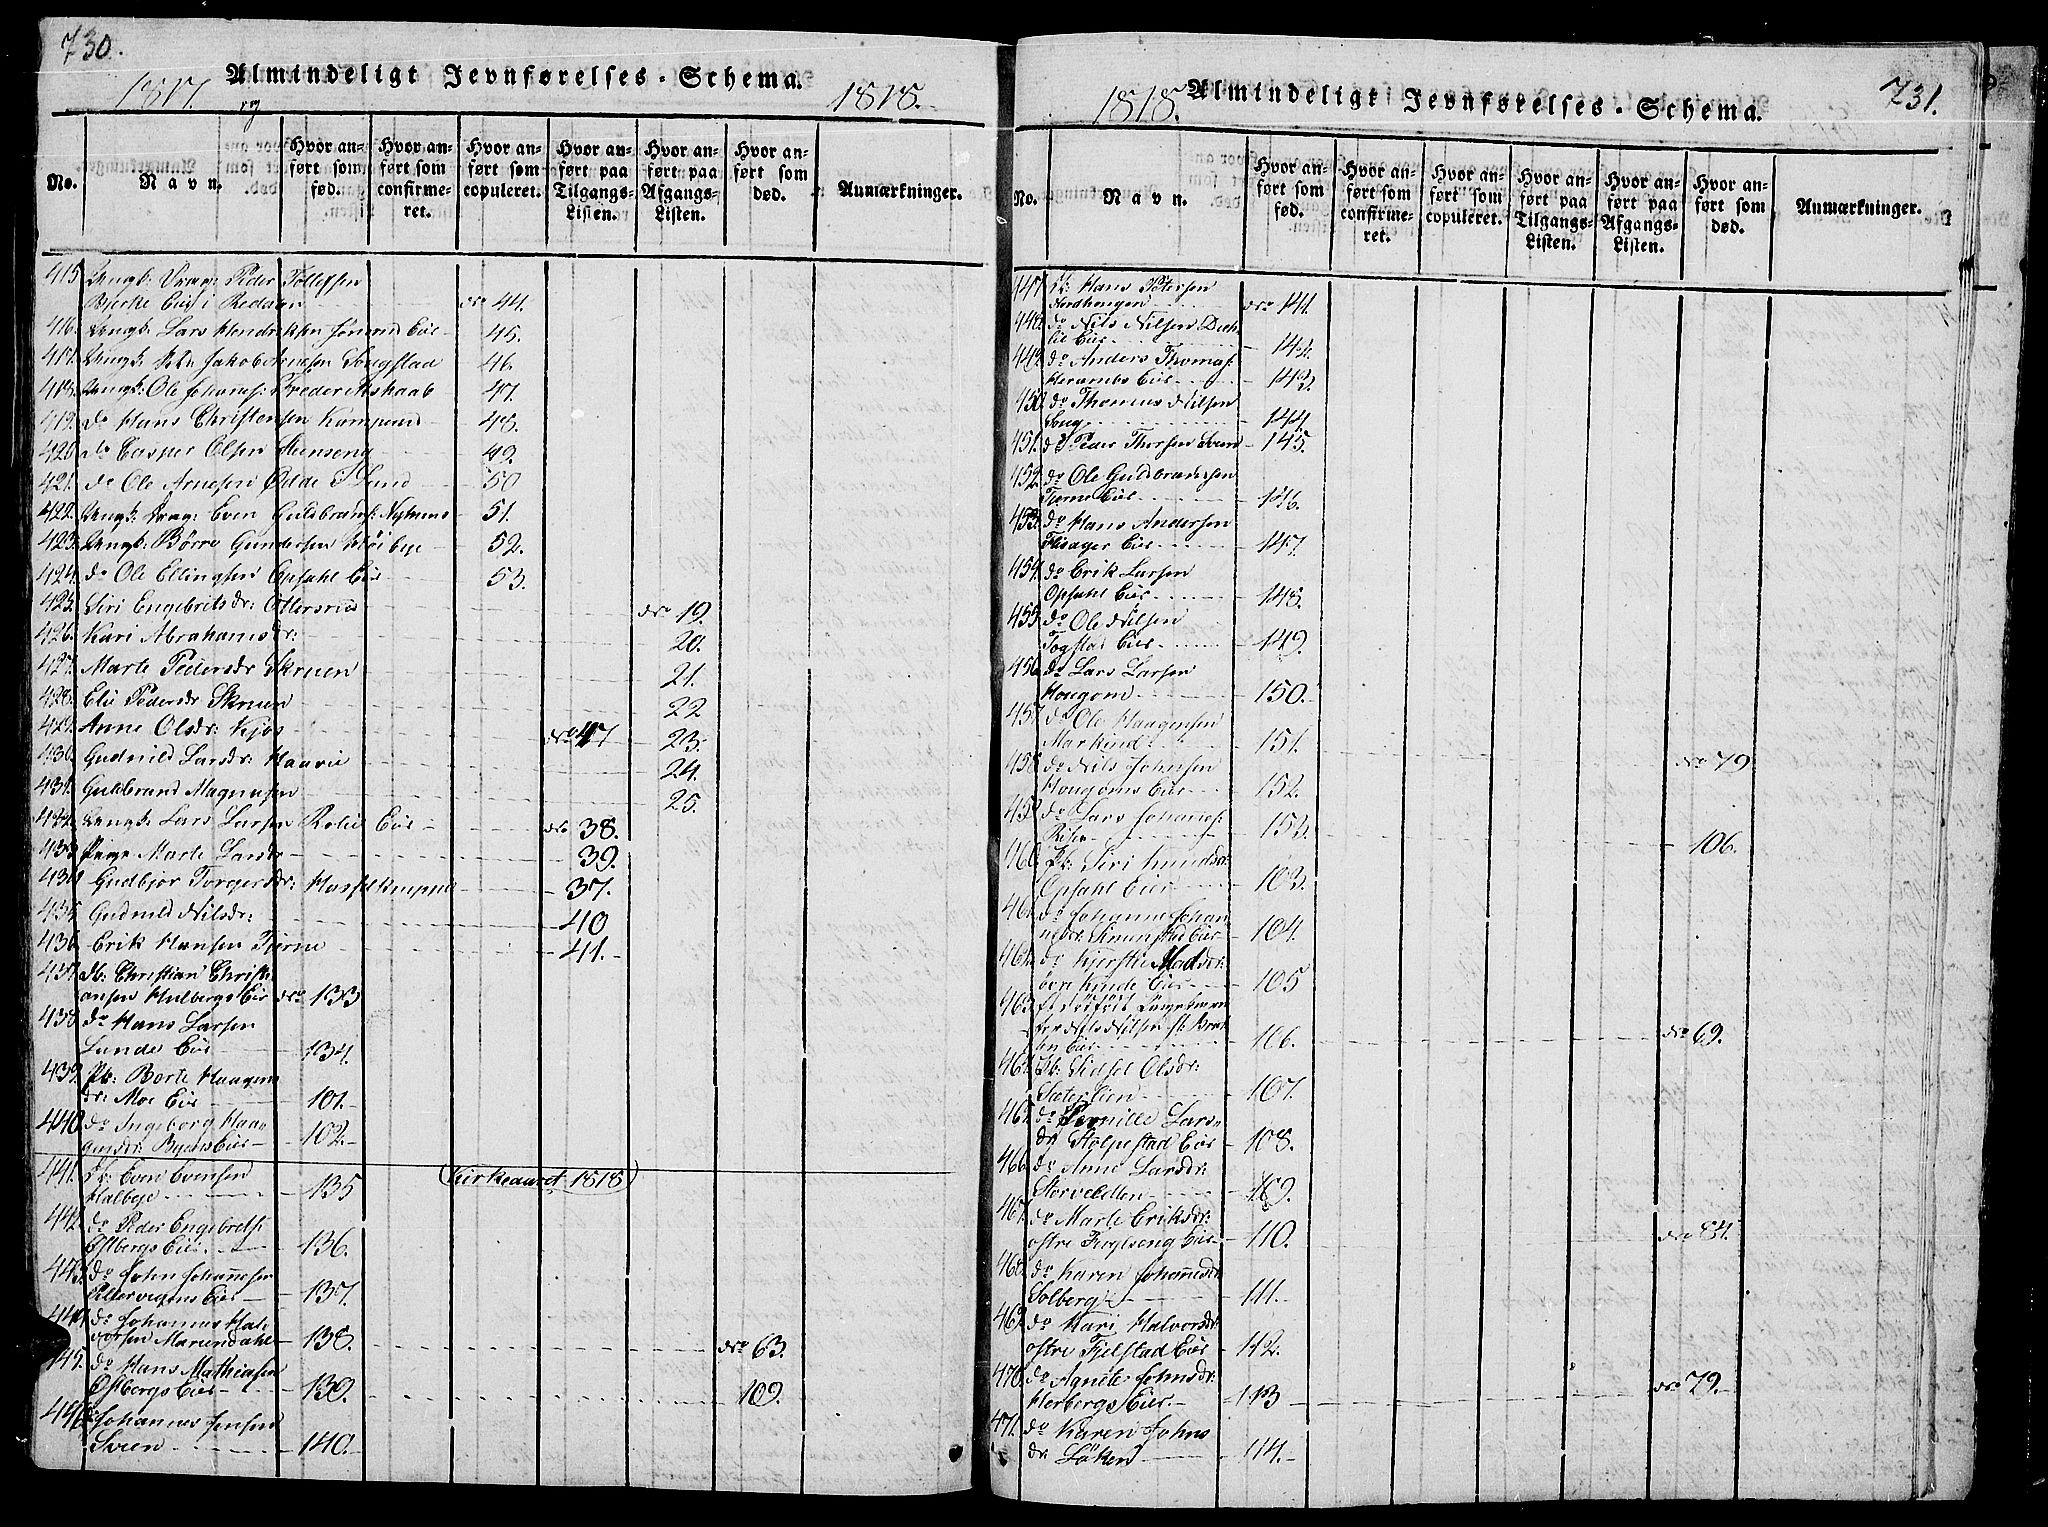 730.
Almindeligt Jevnførelses-Schema.
1817. og 1818.
No.
Navn.
Hvor anført som fød.
Hvor anført som confirmeret.
Hvor anført som copuleret.
Hvor anført paa Tilgangs-Listen.
Hvor anført paa Afgangs-Listen.
Hvor anført som død.
Anmærkninger.
415 Ungk: Peder Tollefsen
Bjerke Eie i Redalen No 44.
416. Ungk: Lars Hendriksen Eie 45.
417. Ungk: Jakob Arnesen Songstad 46
418. Ungk: Ole Johans: Frederikshaab 47.
419. do Hans Christensen Kampeend 48.
420 do Casper Olsen Steenseng 49.
421. do Ole Arnesen Odde 50
422. Ungk: Even Guldbrands: 51.
423. Ungk: Børre Gundersen 52.
424. do Ole Ellingsen Opsahl Eie 53.
425. Siri Engebritsdr: Ottersrud No 19.
426. Kari Abrahamsdr: 20.
427. Marte Pedersdr Skruen 21.
428. Eli Pedersdr Skruen 22
429. Anne Olsdr: Kjos No 47 23.
430. Gudnild Larsdr: Haavie 24.
431. Guldbrand Magnusen 25.
432. Ungk: Lars Larsen Rolie Eie No 38.
433. Pige Marte Larsdr 39.
434 Gudbjør Torgersdr: 37.
435 Gudnild Nilsdr: 40
436 Erik Hansen Tjerne 41.
437. Db: Christian Christi
ansen Hulbergs Eie No 133
438. do Hans Larsen
Lunde Eie 134.
439. Pb: Borte Haagens
dr: Moe Eie 101.
440. do Ingeborg Haa
gensdr: Eie 102.
441. Db: Even Evensen
Halbye 135 Kirkeaaret 1818
442. do Peder Engebrets:
Østbergs Eie 136.
443. do John Johannesen
Eie 137.
444. do Johannes Hal
vorsen Mariendahl 138. No 63.
445. do Hans Mathiasen
Østbergs Eie 139. 109.
446. Johannes Jensen
Sveen 140.
731.
Almindeligt Jevnførelses-Schema.
1818.
No.
Navn.
Hvor anført som fød.
Hvor anført som confirmeret.
Hvor anført som copuleret.
Hvor anført paa Tilgangs-Listen.
Hvor anført paa Afgangs-Listen.
Hvor anført som død.
Anmærkninger.
447. Hans Petersen
Nordhengen No 141.
448. do Nils Nilsen
lie Eie 142.
449. do Anders Thomas:
Herambs Eie 143.
450. do Thomas Nilsen
Soug 144.
451. do Peder Thorsen Sveen 145.
452. do Ole Guldbrandsen
Tjerne Eie 146.
453. do Hans Andersen
Flisager Eie 147.
454. do Erik Larsen
Opsahl Eie 148.
455. do Ole Nilsen
Togstad Eie 149.
456. do Lars Larsen
Hougom 150.
457. do Ole Haagensen
151.
458. do Nils Johnsen
Hougoms Eie 152. No 79
459. do Lars Johans:
Risen 153. 106.
460. Pb: Siri Knudsdr:
Opsahl Eie 103.
461. do Johanne Johan
nesdr: Simenstad Eie 104.
462. do Kjersti Madsdr:
øvre Kinde Eie 105
463. et dødfødt
for Nils Nilsen
Eie 106. No 69.
464. Pb: Sidsel Olsdr:
Sæterlien 107.
465. do Pernille Lars
dr: Stolpestad Eie 108.
466. do Anne Larsdr:
Storvelten 109.
467. do Marte Eriksdr:
østre Eie 110. No 84.
468. do Karen Johannesdr
Solberg 111.
469. do Kari Halvorsdr:
østre Fjelstad Eie 112.
470. do Agnete Johnsdr:
Herbergs Eie 113 No 79.
471. do Karen Johns
dr: Løken 114.